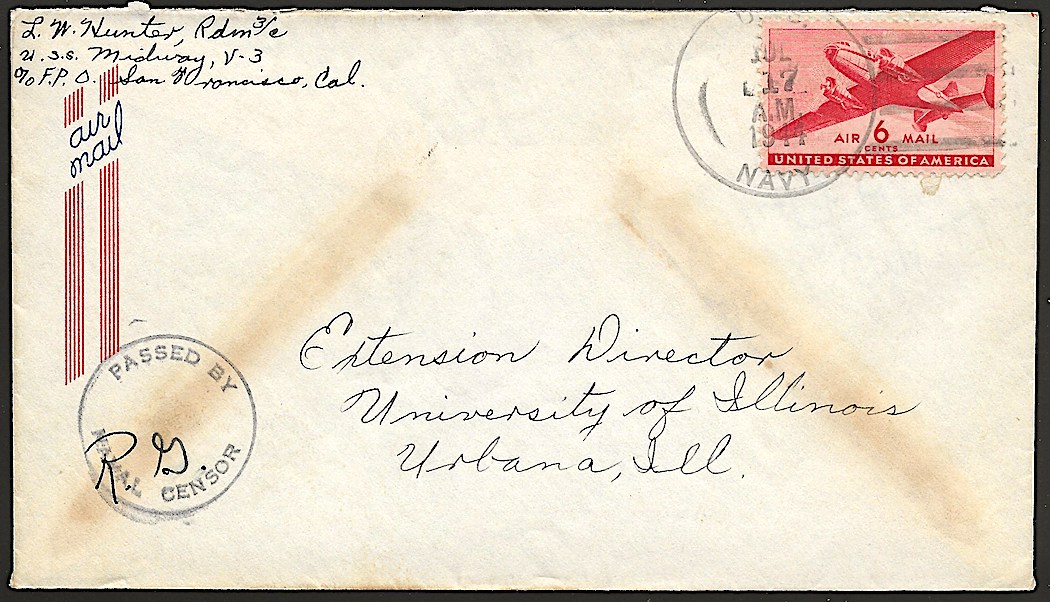 L. W. Hunter, Rdm 3/c
U.S.S. Midway, V-3
c/o F.P.O. San Francisco, Cal.
air
mail
JUL
17
A.M.
1944
NAVY
AIR 6 MAIL
CENTS
UNITED STATES OF AMERICA
Extension Director
University of Illinois
Urbana, Ill.
PASSED BY
R. G.
NAVAL CENSOR